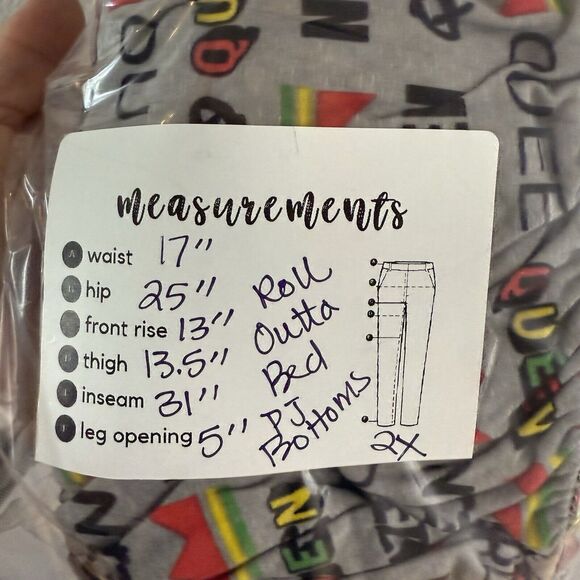 measurements
A waist 17"
hip 25"
front rise 13"
thigh 13.5"
inseam 31"
leg opening 5"
Roll
Outta
Bed
PJ
Bottoms
2X
QUEEN
QUEEN